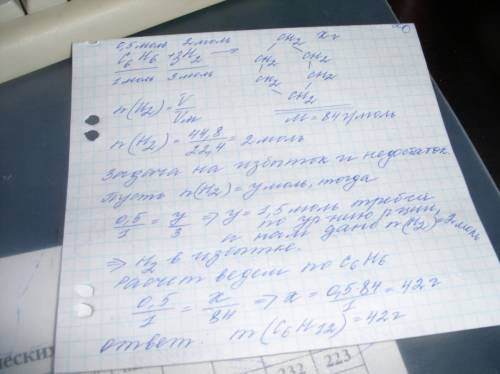 0,5 моль 2 моль
C6H6 + 3H2 →
1 моль 3 моль
CH2 xг
CH2 CH2
CH2 CH2
CH2
M = 84 г/моль
n(H2) = V/Vм
n(H2) = 44,8/22,4 = 2 моль
Задача на избыток и недостаток.
Пусть n(H2) = y моль, тогда
0,5/1 = y/3 ⇒ y = 1,5 моль требся
по ур-нию р-ции,
а нам дано n(H2) = 2 моль
⇒ H2 в избытке.
Расчет ведем по C6H6
0,5/1 = x/84 ⇒ x = 0,5·84/1 = 42 г
ответ. m(C6H12) = 42г
ческих
232 223